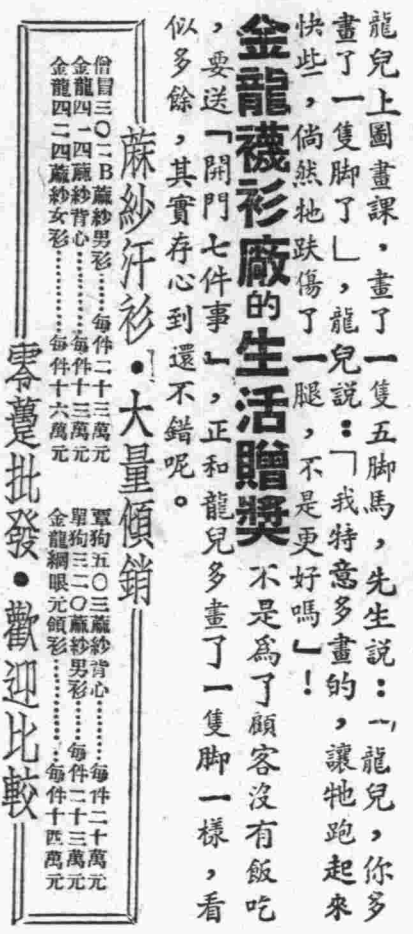 龍兒上圖畫課，畫了一隻五脚馬，先生説：「龍兒，你多
畫了一隻脚了」，龍兒説：「我特意多畫的，讓牠跑起來
快些，倘然牠跌傷了一腿，不是更好嗎」！
金龍襪衫廠的生活贈獎 不是爲了顧客沒有飯吃
，要送「開門七件事」，正和龍兒多畫了一隻脚一樣，看
似多餘，其實存心到還不錯呢。
蔴紗汗衫·大量傾銷
僧冒三〇二B蔴紗男衫……每件二十三萬元
金龍四一四蔴紗背心……每件十三萬元
金龍四二四蔴紗女衫……每件十六萬元
單狗五〇三蔴紗背心……每件二十萬元
單狗三二〇蔴紗男衫……每件二十三萬元
金龍網眼元領衫……每件十四萬元
零躉批發·歡迎比較